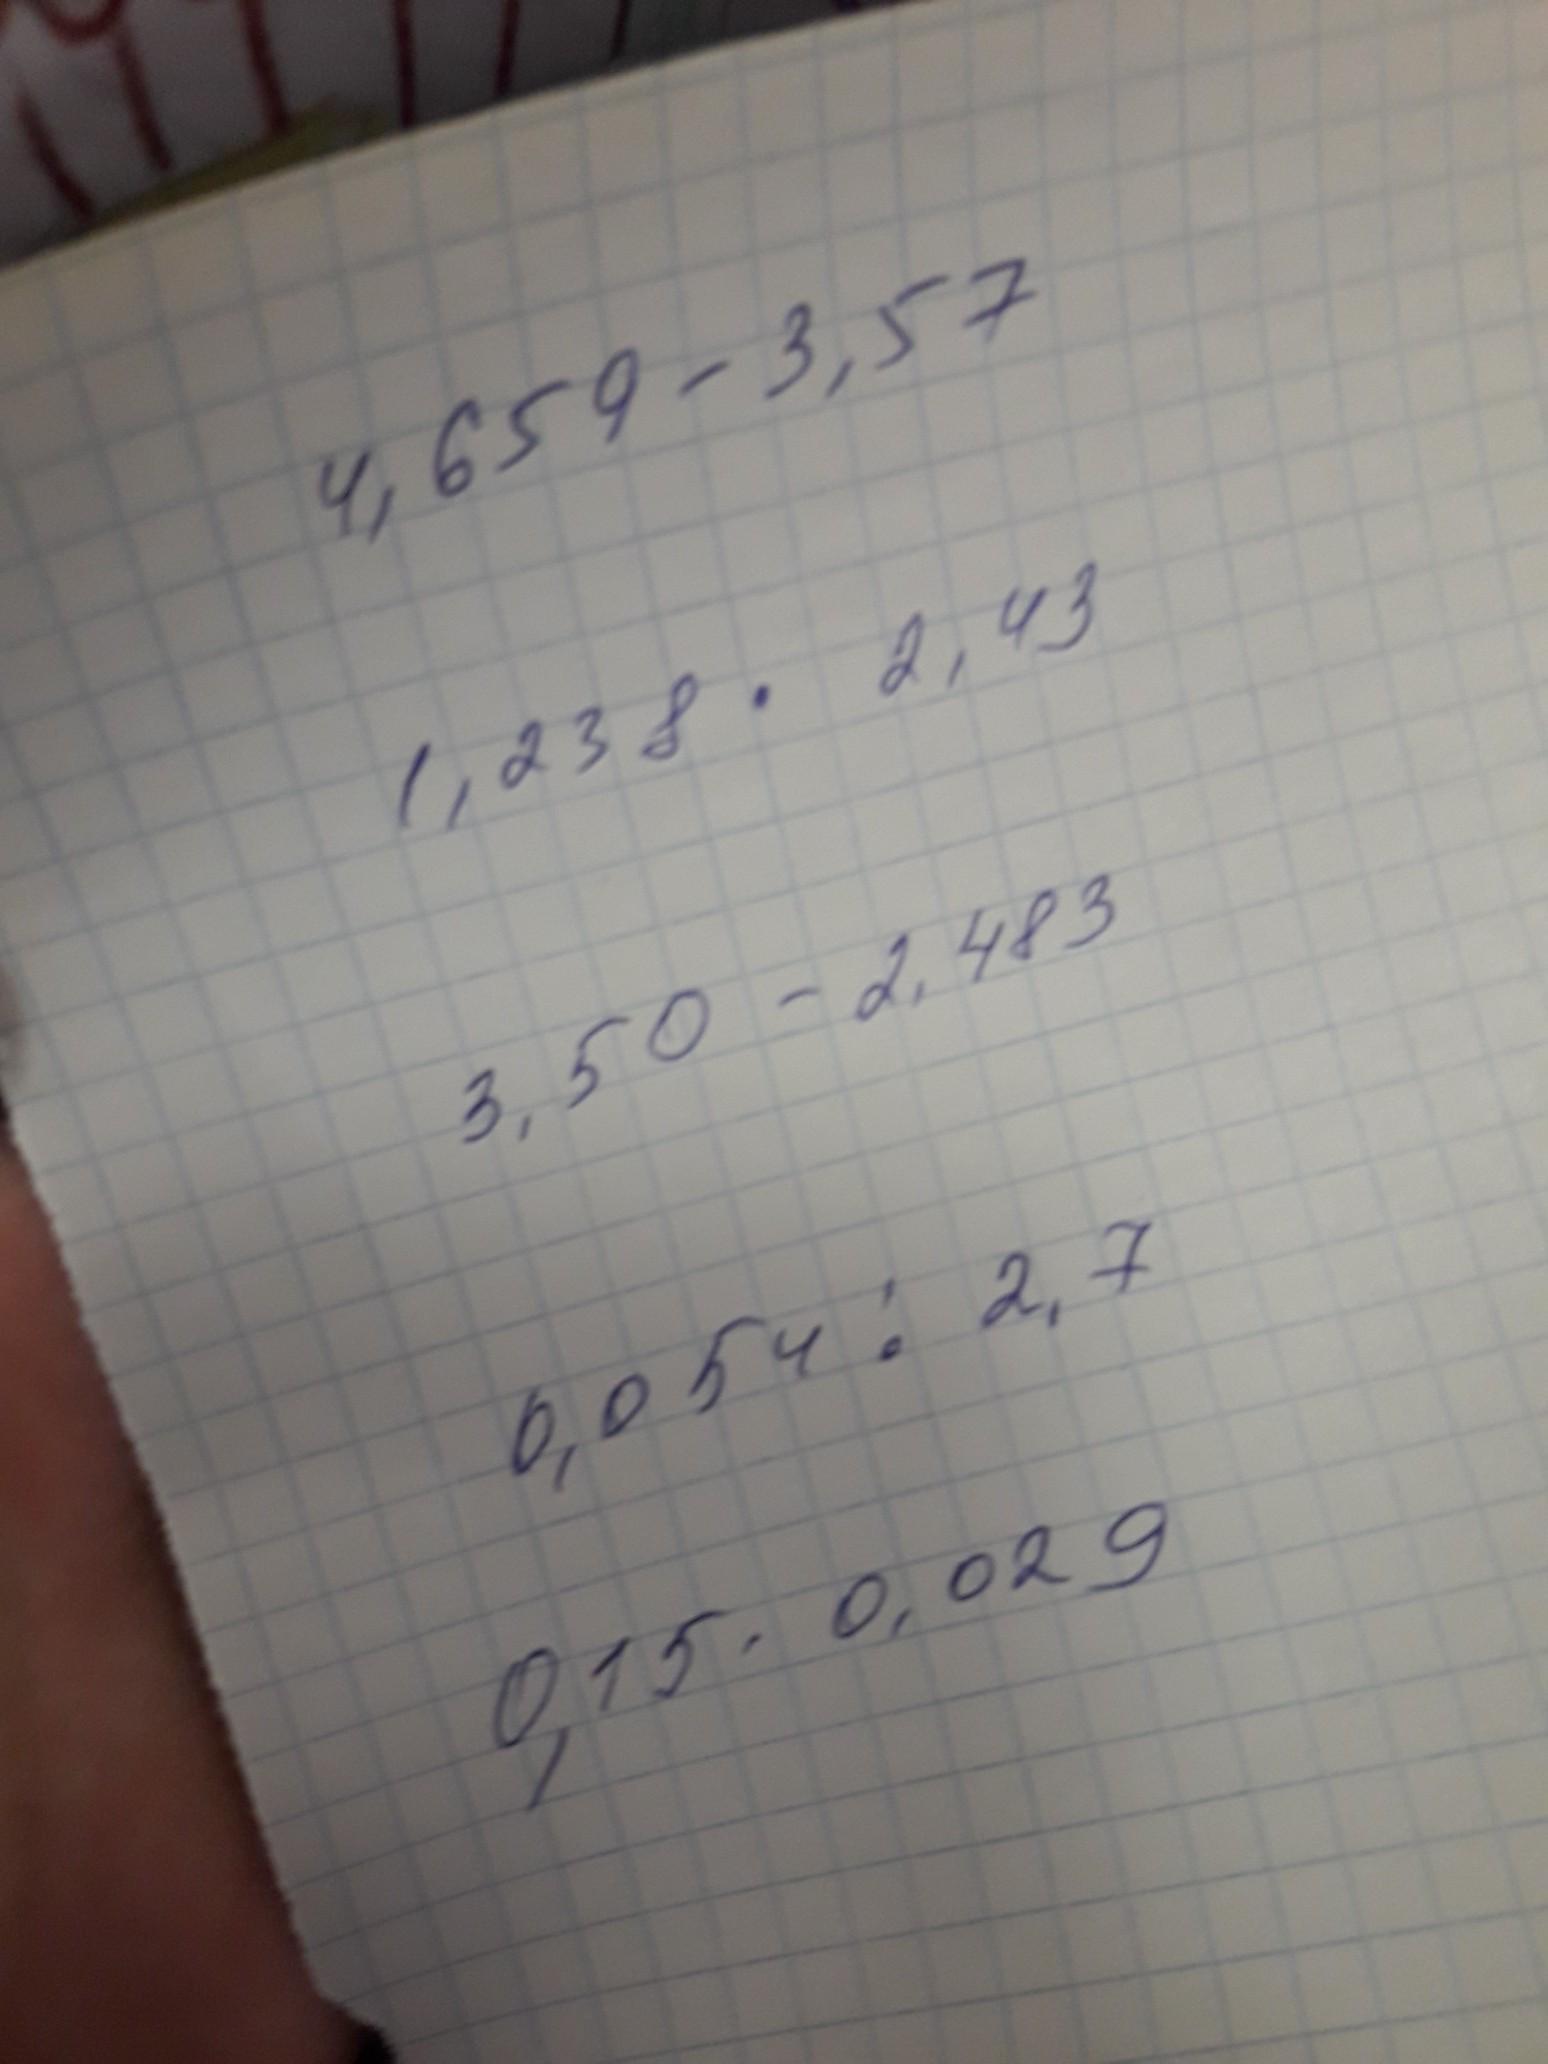 4,659 - 3,57
1,238 · 2,43
3,50 - 2,483
0,054 : 2,7
0,15 · 0,029